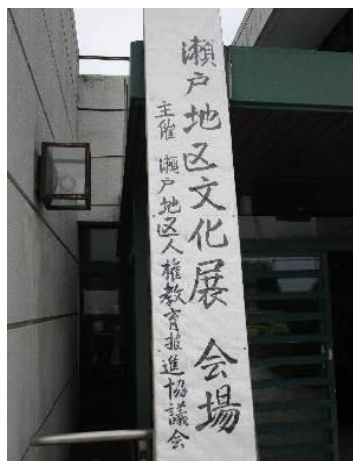 瀬戸地区文化展 会場
主催 瀬戸地区人権教育推進協議会